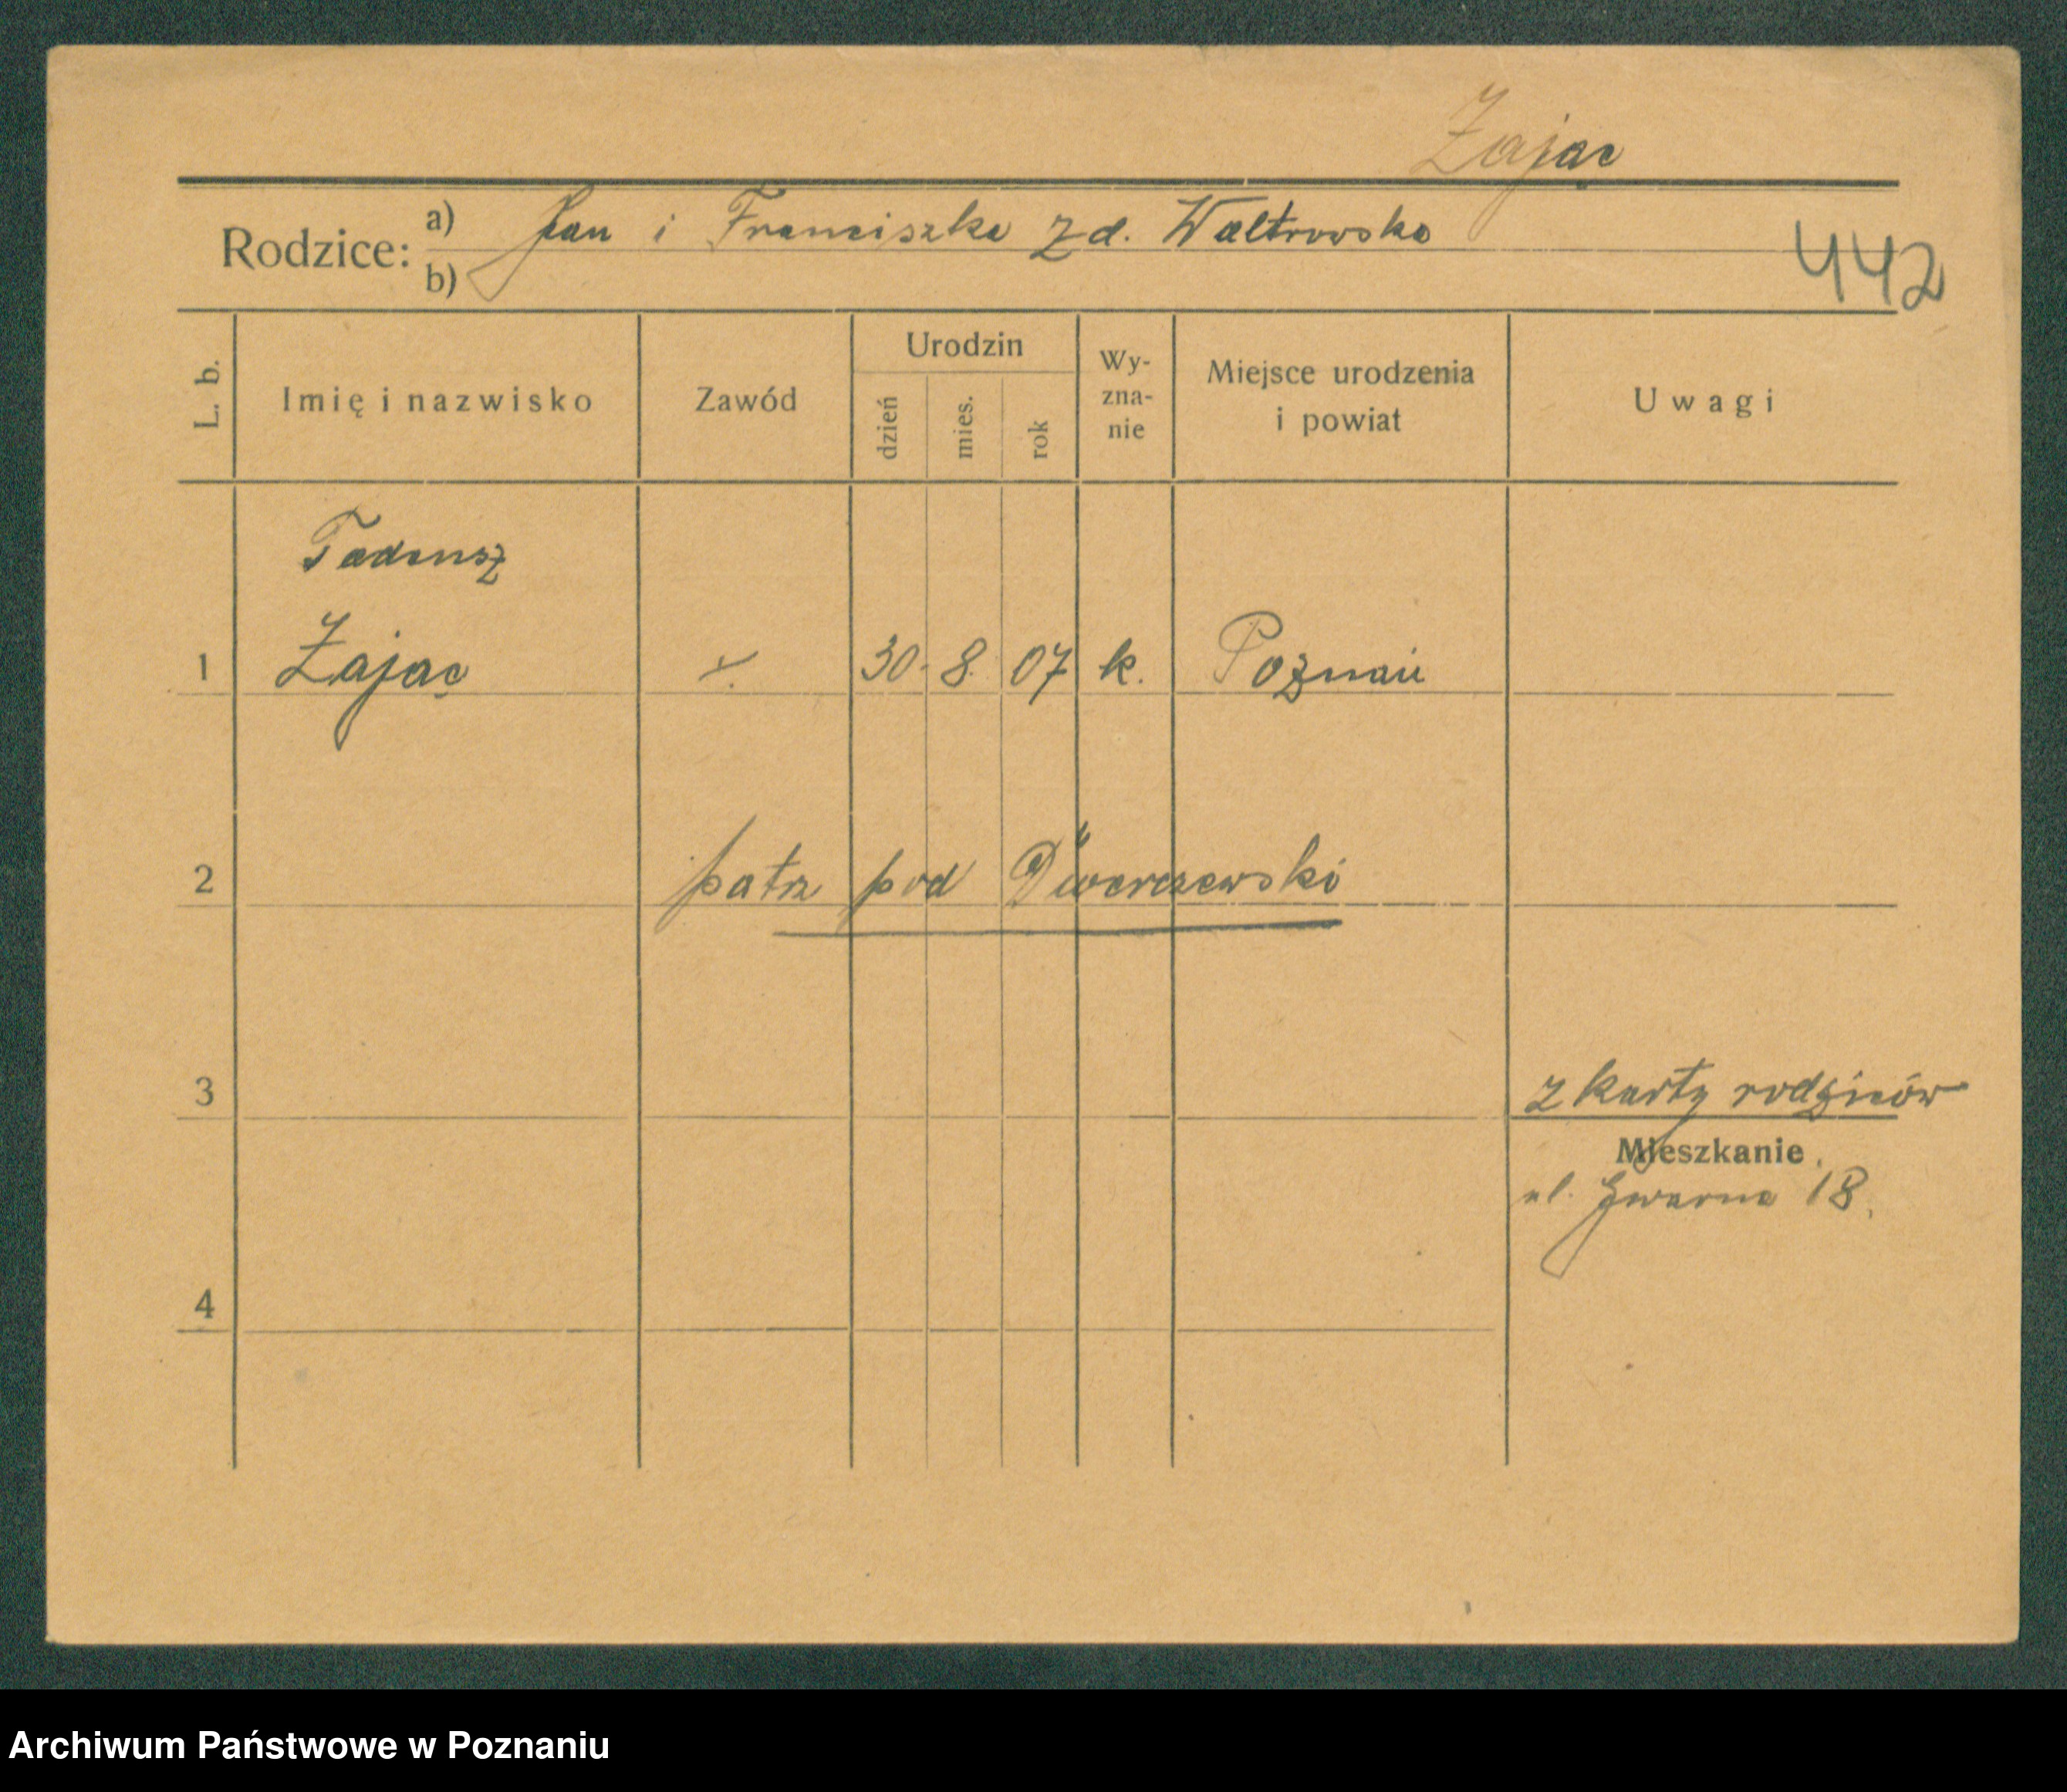 Zając
Rodzice: a) Jan i Franciszka z d. Waltrowska
b)
442
L. b. Imię i nazwisko Zawód Urodzin dzień mies. rok Wy-zna-nie Miejsce urodzenia i powiat Uwagi
Tadeusz
1 Zając 30. 8. 07 k. Poznań
2 patrz pod
3 z karty rodziców
Mieszkanie
ul. Gwarna 18.
4
Archiwum Państwowe w Poznaniu